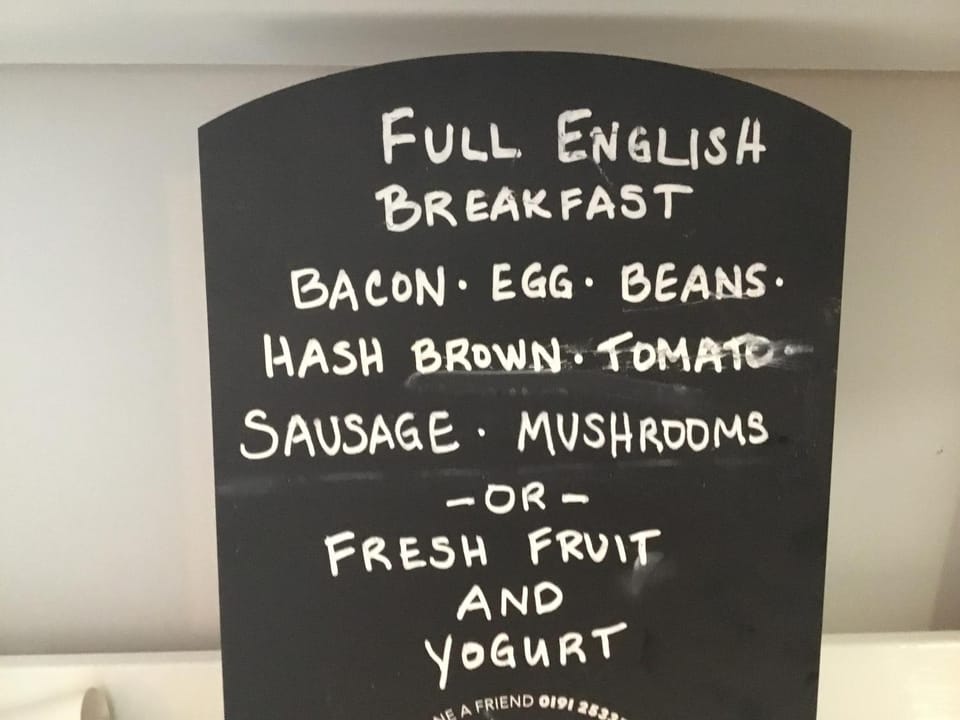 FULL ENGLISH
BREAKFAST
BACON · EGG · BEANS ·
HASH BROWN · TOMATO ·
SAUSAGE · MUSHROOMS
- OR -
FRESH FRUIT
AND
YOGURT
A FRIEND 0191